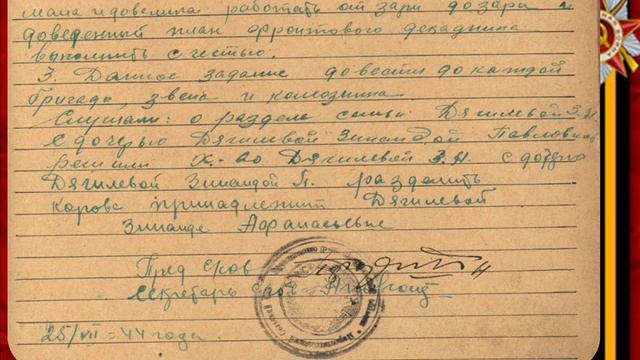 мала и до велика работать от зари до зари и
доведенный план фронтового декадника
выполнить с честью.
3. Данное задание довести до каждой
бригады, звена и колхозника.
Слушали: о разделе семьи Дягилевой З.А.
с дочерью Дягилевой Зинаидой Павловной
решили х-во Дягилевой З.А. с дочерью
Дягилевой Зинаидой П. разделить
корова принадлежит Дягилевой
Зинаиде Афанасьевне
Пред
Секретарь
25/VII=44 года.